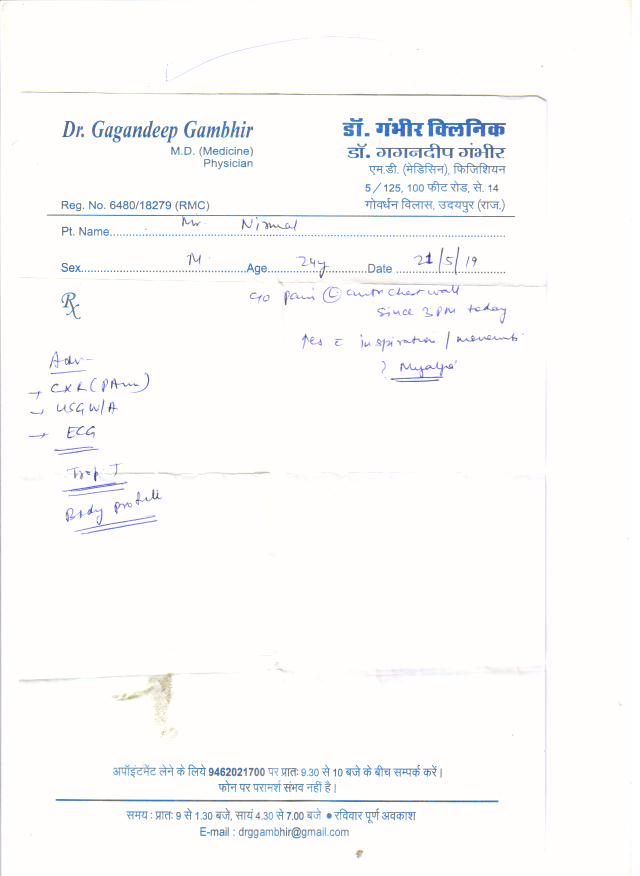 Dr. Gagandeep Gambhir
M.D. (Medicine)
Physician
Reg. No. 6480/18279 (RMC)
डॉ. गंभीर क्लिनिक
डॉ. गगनदीप गंभीर
एम.डी. (मेडिसिन), फिजिशियन
5/125, 100 फीट रोड, से. 14
गोवर्धन विलास, उदयपुर (राज.)
Pt. Name Mr. Nirmal
Sex M Age 24y Date 21/5/19
Rx
C/o pain (L) chest wall
since 3PM today
↑es c inspiration / movements
? Myalgia
Adv-
→ CXR (PA view)
→ USG W/A
→ ECG
Trop T
Body profile
अपॉइंटमेंट लेने के लिये 9462021700 पर प्रातः 9.30 से 10 बजे के बीच सम्पर्क करें।
फोन पर परामर्श संभव नहीं है।
समय : प्रातः 9 से 1.30 बजे, सायं 4.30 से 7.00 बजे ● रविवार पूर्ण अवकाश
E-mail : drggambhir@gmail.com